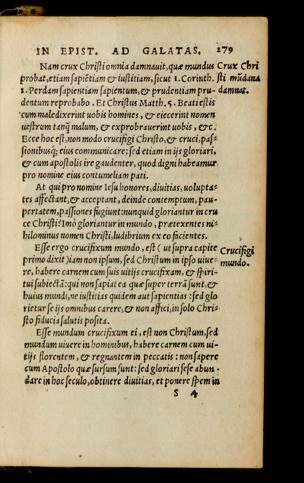 IN EPIST. AD GALATAS. 279
Nam crux Christi omnia damnauit, quæ mundus
Crux Chri
probat, etiam sapiētiam & iustitiam, sicut 1. Corinth.
sti mūdana
1. Perdam sapientiam sapientum, & prudentiam pru-
damnat.
dentum reprobabo. Et Christus Matth. 5. Beati estis
cum maledixerint uobis homines, & eiecerint nomen
uestrum tanq̄ malum, & exprobrauerint uobis, &c.
Ecce hoc est, non modo crucifigi Christo, & cruci, pas-
sionibusq; eius communicare: sed etiam in ijs gloriari,
& cum apostolis ire gaudenter, quod digni habeamur
pro nomine eius contumeliam pati.
At qui pro nomine Iesu honores, diuitias, uolupta-
tes affectant, & acceptant, deinde contemptum, pau-
pertatem, passiones fugiunt: nunquid gloriantur in cru
ce Christi? Imò gloriantur in mundo, prætexentes ni-
hilominus nomen Christi, ludibrium ex eo facientes.
Esse ergo crucifixum mundo, est (ut supra capite
Crucifigi
primo dixit) iam non ipsum, sed Christum in ipso uiue-
mundo.
re, habere carnem cum suis uitijs crucifixam, & spiri-
tui subiectā: qui non sapiat ea quæ super terrā sunt, &
huius mundi, ne iustitias quidem aut sapientias: sed glo
rietur se ijs omnibus carere, & non affici, in solo Chri-
sto fiducia salutis posita.
Esse mundum crucifixum ei, est non Christum, sed
mundum uiuere in hominibus, habere carnem cum ui-
tijs florentem, & regnantem in peccatis: non sapere
cum Apostolo quæ sursum sunt: sed gloriari se se abun-
dare in hoc seculo, obtinere diuitias, et ponere spem in
S 4